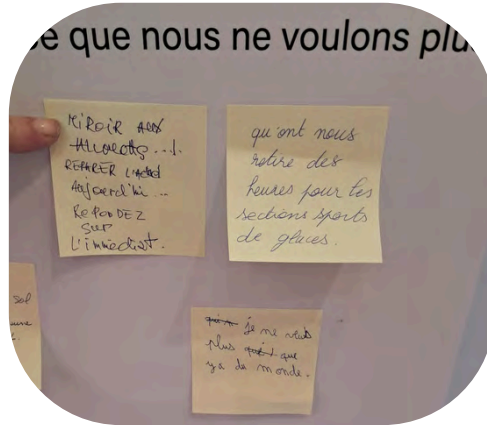 ce que nous ne voulons plu
MIROIR AUX
ALOUETTES...!
REPARER L'
Aujourd'hui...
REPONDEZ
SUR
L'immediat.
qu'ont nous
retire des
heures pour les
sections sports
de glaces.
sol
je ne veux
plus que
y'a du monde.